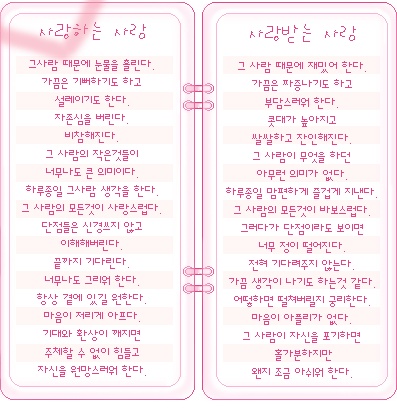 사랑하는 사람
그사람 때문에 눈물을 흘린다.
가끔은 기뻐하기도 하고
설레이기도 한다.
자존심을 버린다.
비참해진다.
그 사람의 작은것들이
너무나도 큰 의미이다.
하루종일 그사람 생각을 한다.
그 사람의 모든것이 사랑스럽다.
단점들은 신경쓰지 않고
이해해버린다.
끝까지 기다린다.
너무나도 그리워 한다.
항상 곁에 있길 원한다.
마음이 저리게 아프다.
기대와 환상이 깨지면
주체할 수 없이 힘들고
자신을 원망스러워 한다.
사랑받는 사람
그 사람 때문에 재밌어 한다.
가끔은 짜증나기도 하고
부담스러워 한다.
콧대가 높아지고
쌀쌀하고 잔인해진다.
그 사람이 무엇을 하던
아무런 의미가 없다.
하루종일 맘편하게 즐겁게 지낸다.
그 사람의 모든것이 바보스럽다.
그러다가 단점이라도 보이면
너무 정이 떨어진다.
전혀 기다려주지 않는다.
가끔 생각이 나기도 하는것 같다.
어떻하면 떨쳐버릴지 궁리한다.
마음이 아플리가 없다.
그 사람이 자신을 포기하면
홀가분하지만
왠지 조금 아쉬워 한다.